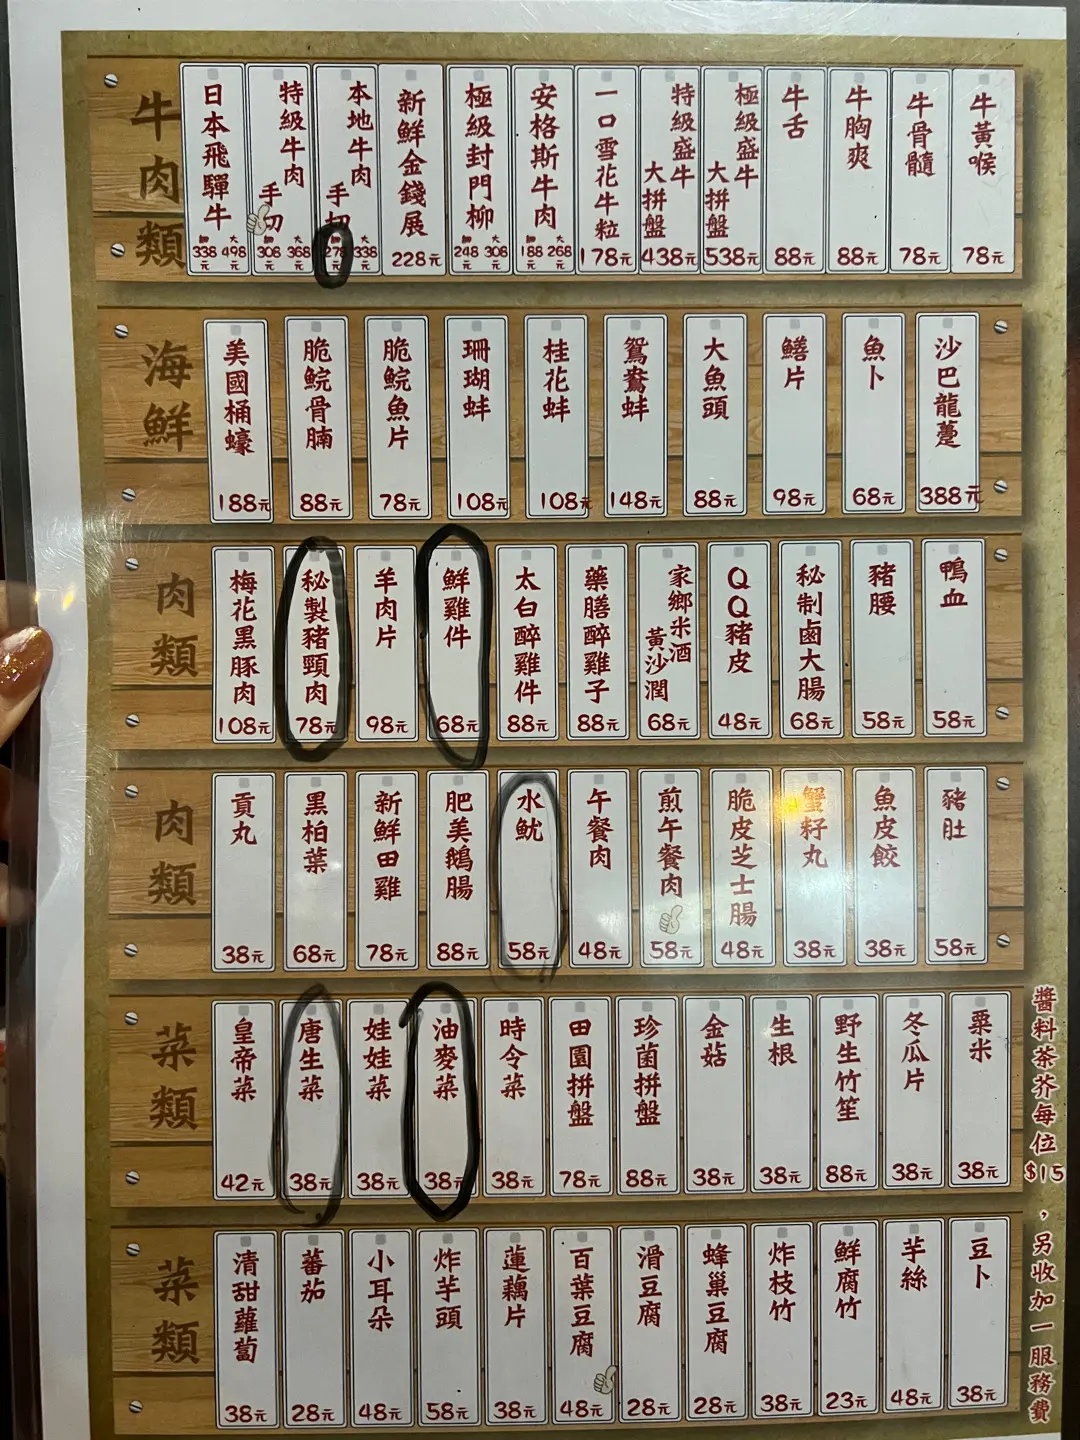 牛肉類
日本飛驒牛 細338元 大498元
特級牛肉 手切 細308元 大368元
本地牛肉 手切 細278元 大338元
新鮮金錢展 228元
極級封門柳 細248元 大308元
安格斯牛肉 細188元 大268元
一口雪花牛粒 178元
特級盛牛 大拼盤 438元
極級盛牛 大拼盤 538元
牛舌 88元
牛胸爽 88元
牛骨髓 78元
牛黃喉 78元
海鮮
美國桶蠔 188元
脆鯇骨腩 88元
脆鯇魚片 78元
珊瑚蚌 108元
桂花蚌 108元
鴛鴦蚌 148元
大魚頭 88元
鱔片 98元
魚卜 68元
沙巴龍躉 388元
肉類
梅花黑豚肉 108元
秘製豬頸肉 78元
羊肉片 98元
鮮雞件 68元
太白醉雞件 88元
藥膳醉雞子 88元
家鄉米酒 黃沙潤 68元
QQ豬皮 48元
秘制鹵大腸 68元
豬腰 58元
鴨血 58元
肉類
貢丸 38元
黑柏葉 68元
新鮮田雞 78元
肥美鵝腸 88元
水魷 58元
午餐肉 48元
煎午餐肉 58元
脆皮芝士腸 48元
蟹籽丸 38元
魚皮餃 38元
豬肚 58元
菜類
皇帝菜 42元
唐生菜 38元
娃娃菜 38元
油麥菜 38元
時令菜 38元
田園拼盤 78元
珍菌拼盤 88元
金菇 38元
生根 38元
野生竹笙 88元
冬瓜片 38元
粟米 38元
菜類
清甜蘿蔔 38元
蕃茄 28元
小耳朵 48元
炸芋頭 58元
蓮藕片 38元
百葉豆腐 48元
滑豆腐 28元
蜂巢豆腐 28元
炸枝竹 38元
鮮腐竹 23元
芋絲 48元
豆卜 38元
醬料茶芥每位$15，另收加一服務費